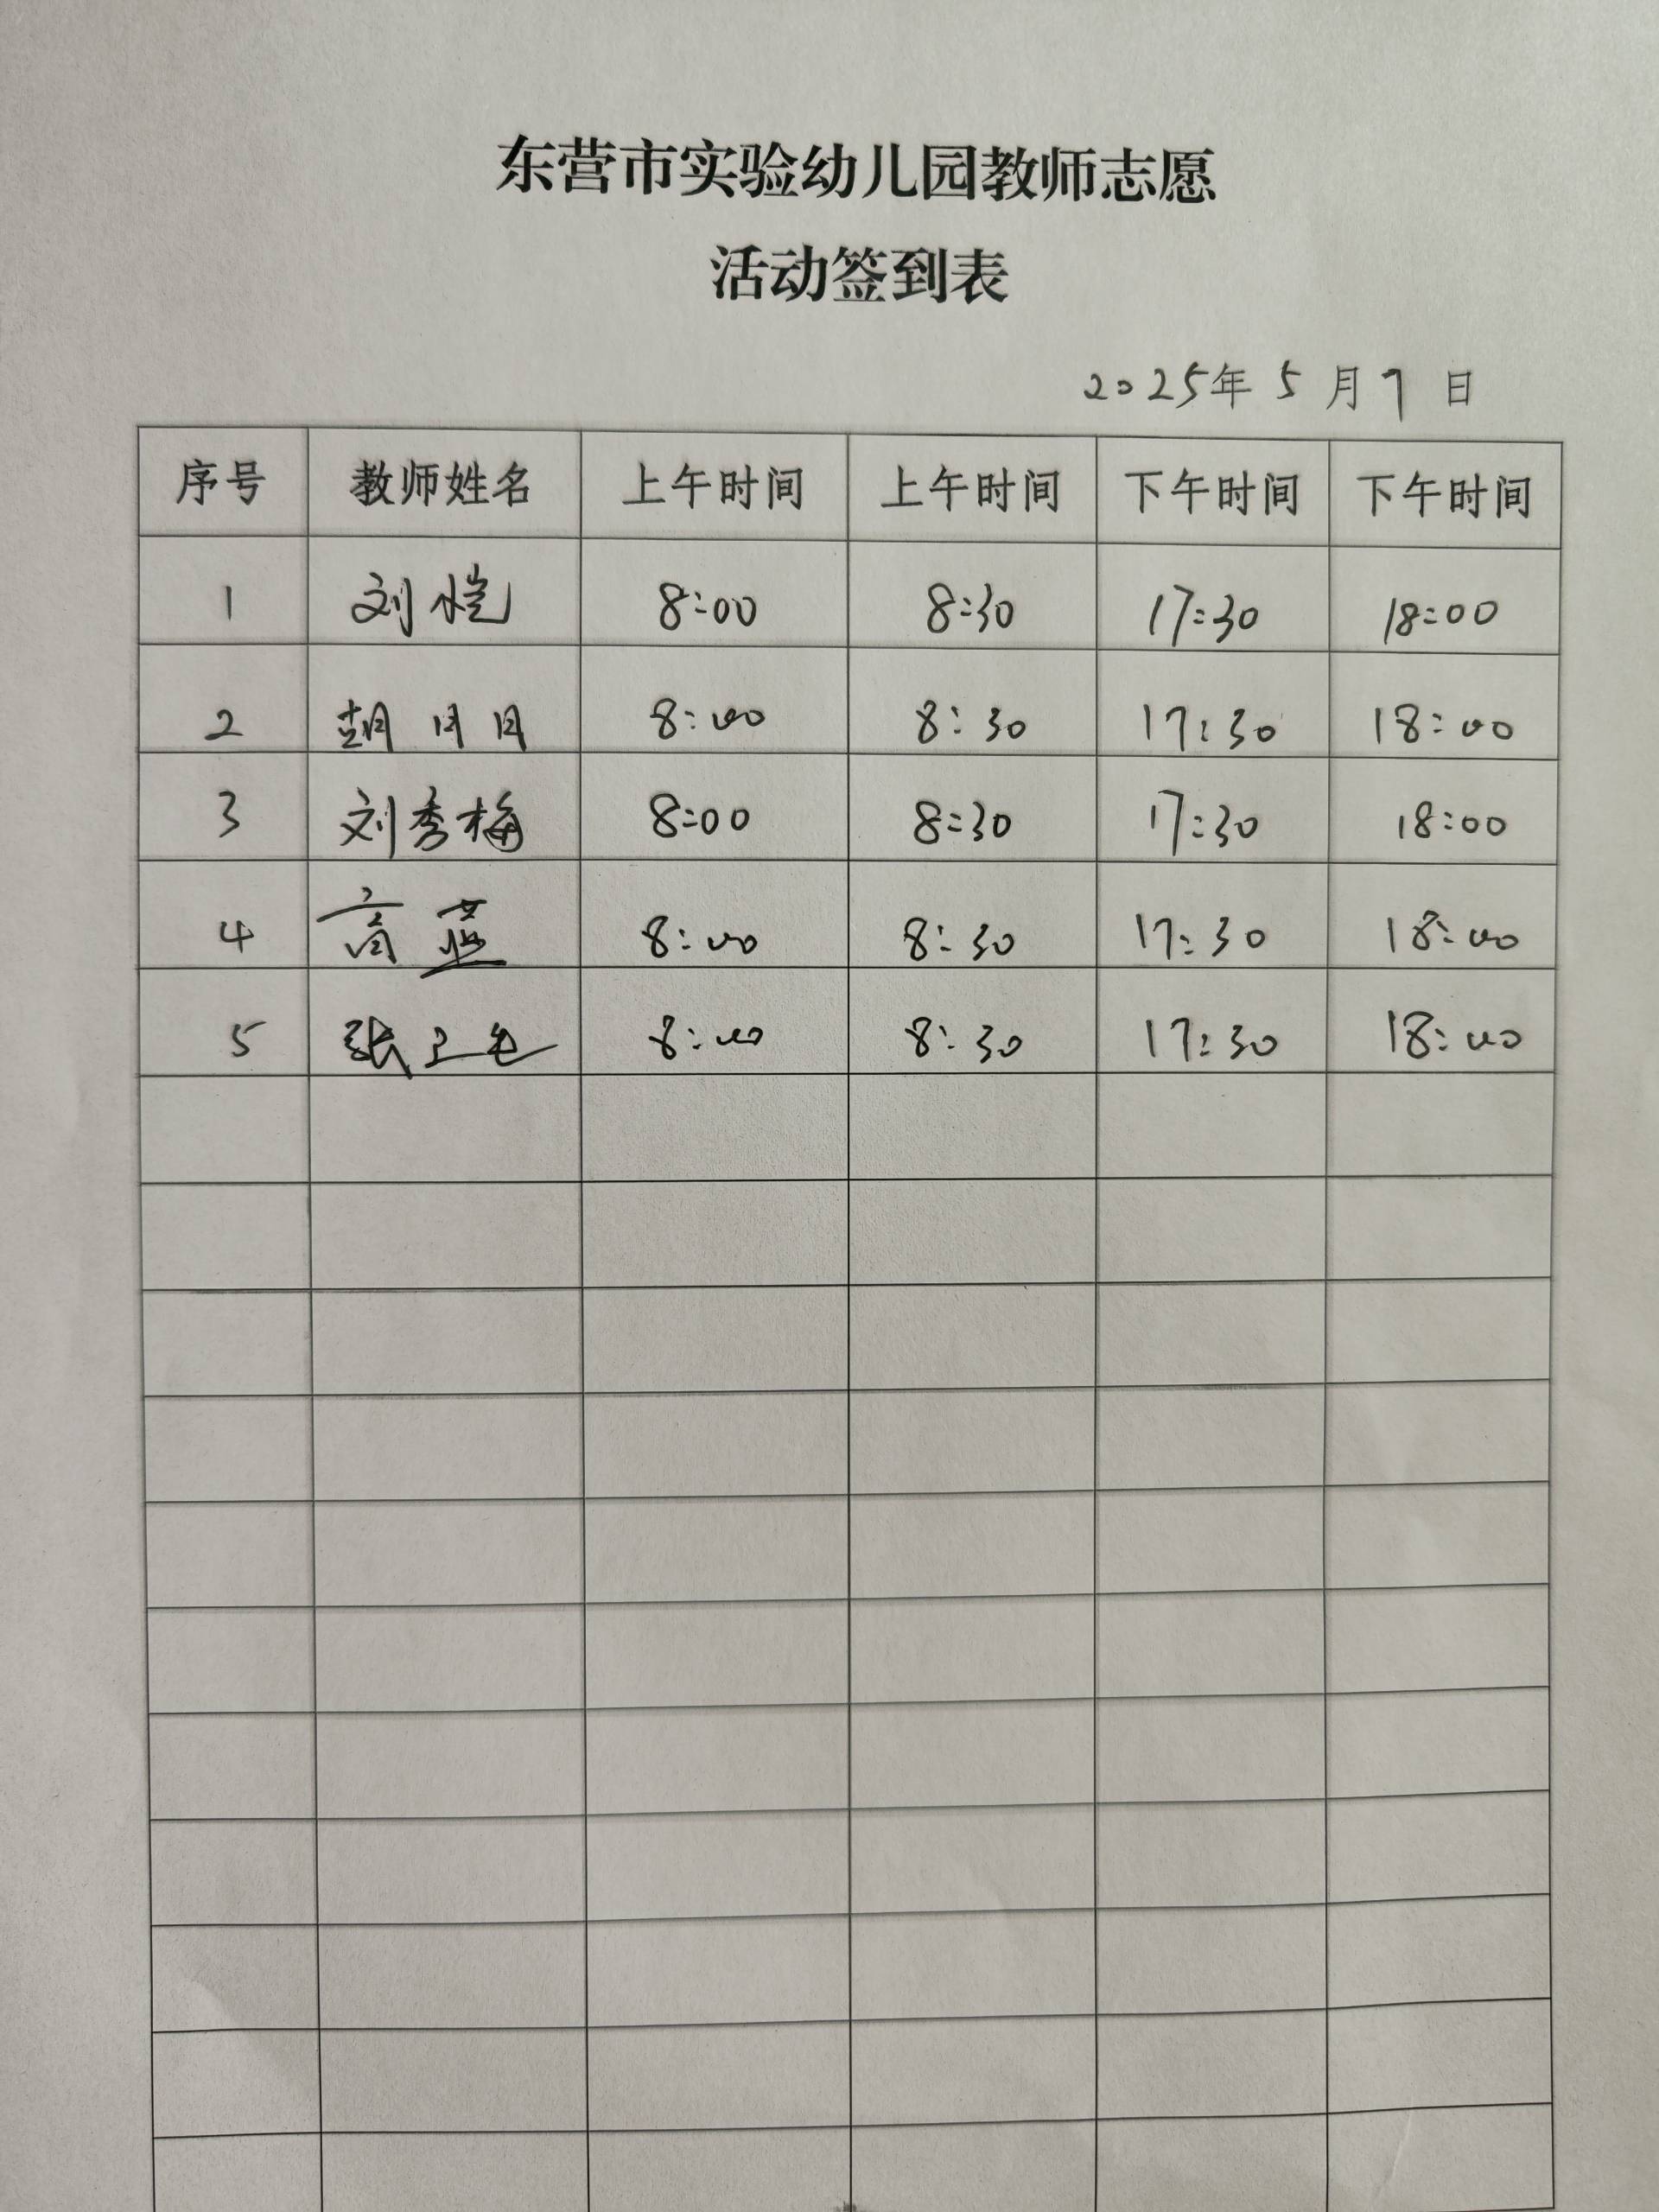 东营市实验幼儿园教师志愿
活动签到表
2025年 5 月 7 日
序号 教师姓名 上午时间 上午时间 下午时间 下午时间
1 刘恺 8:00 8:30 17:30 18:00
2 胡月月 8:00 8:30 17:30 18:00
3 刘秀梅 8:00 8:30 17:30 18:00
4 高燕 8:00 8:30 17:30 18:00
5 张 8:00 8:30 17:30 18:00